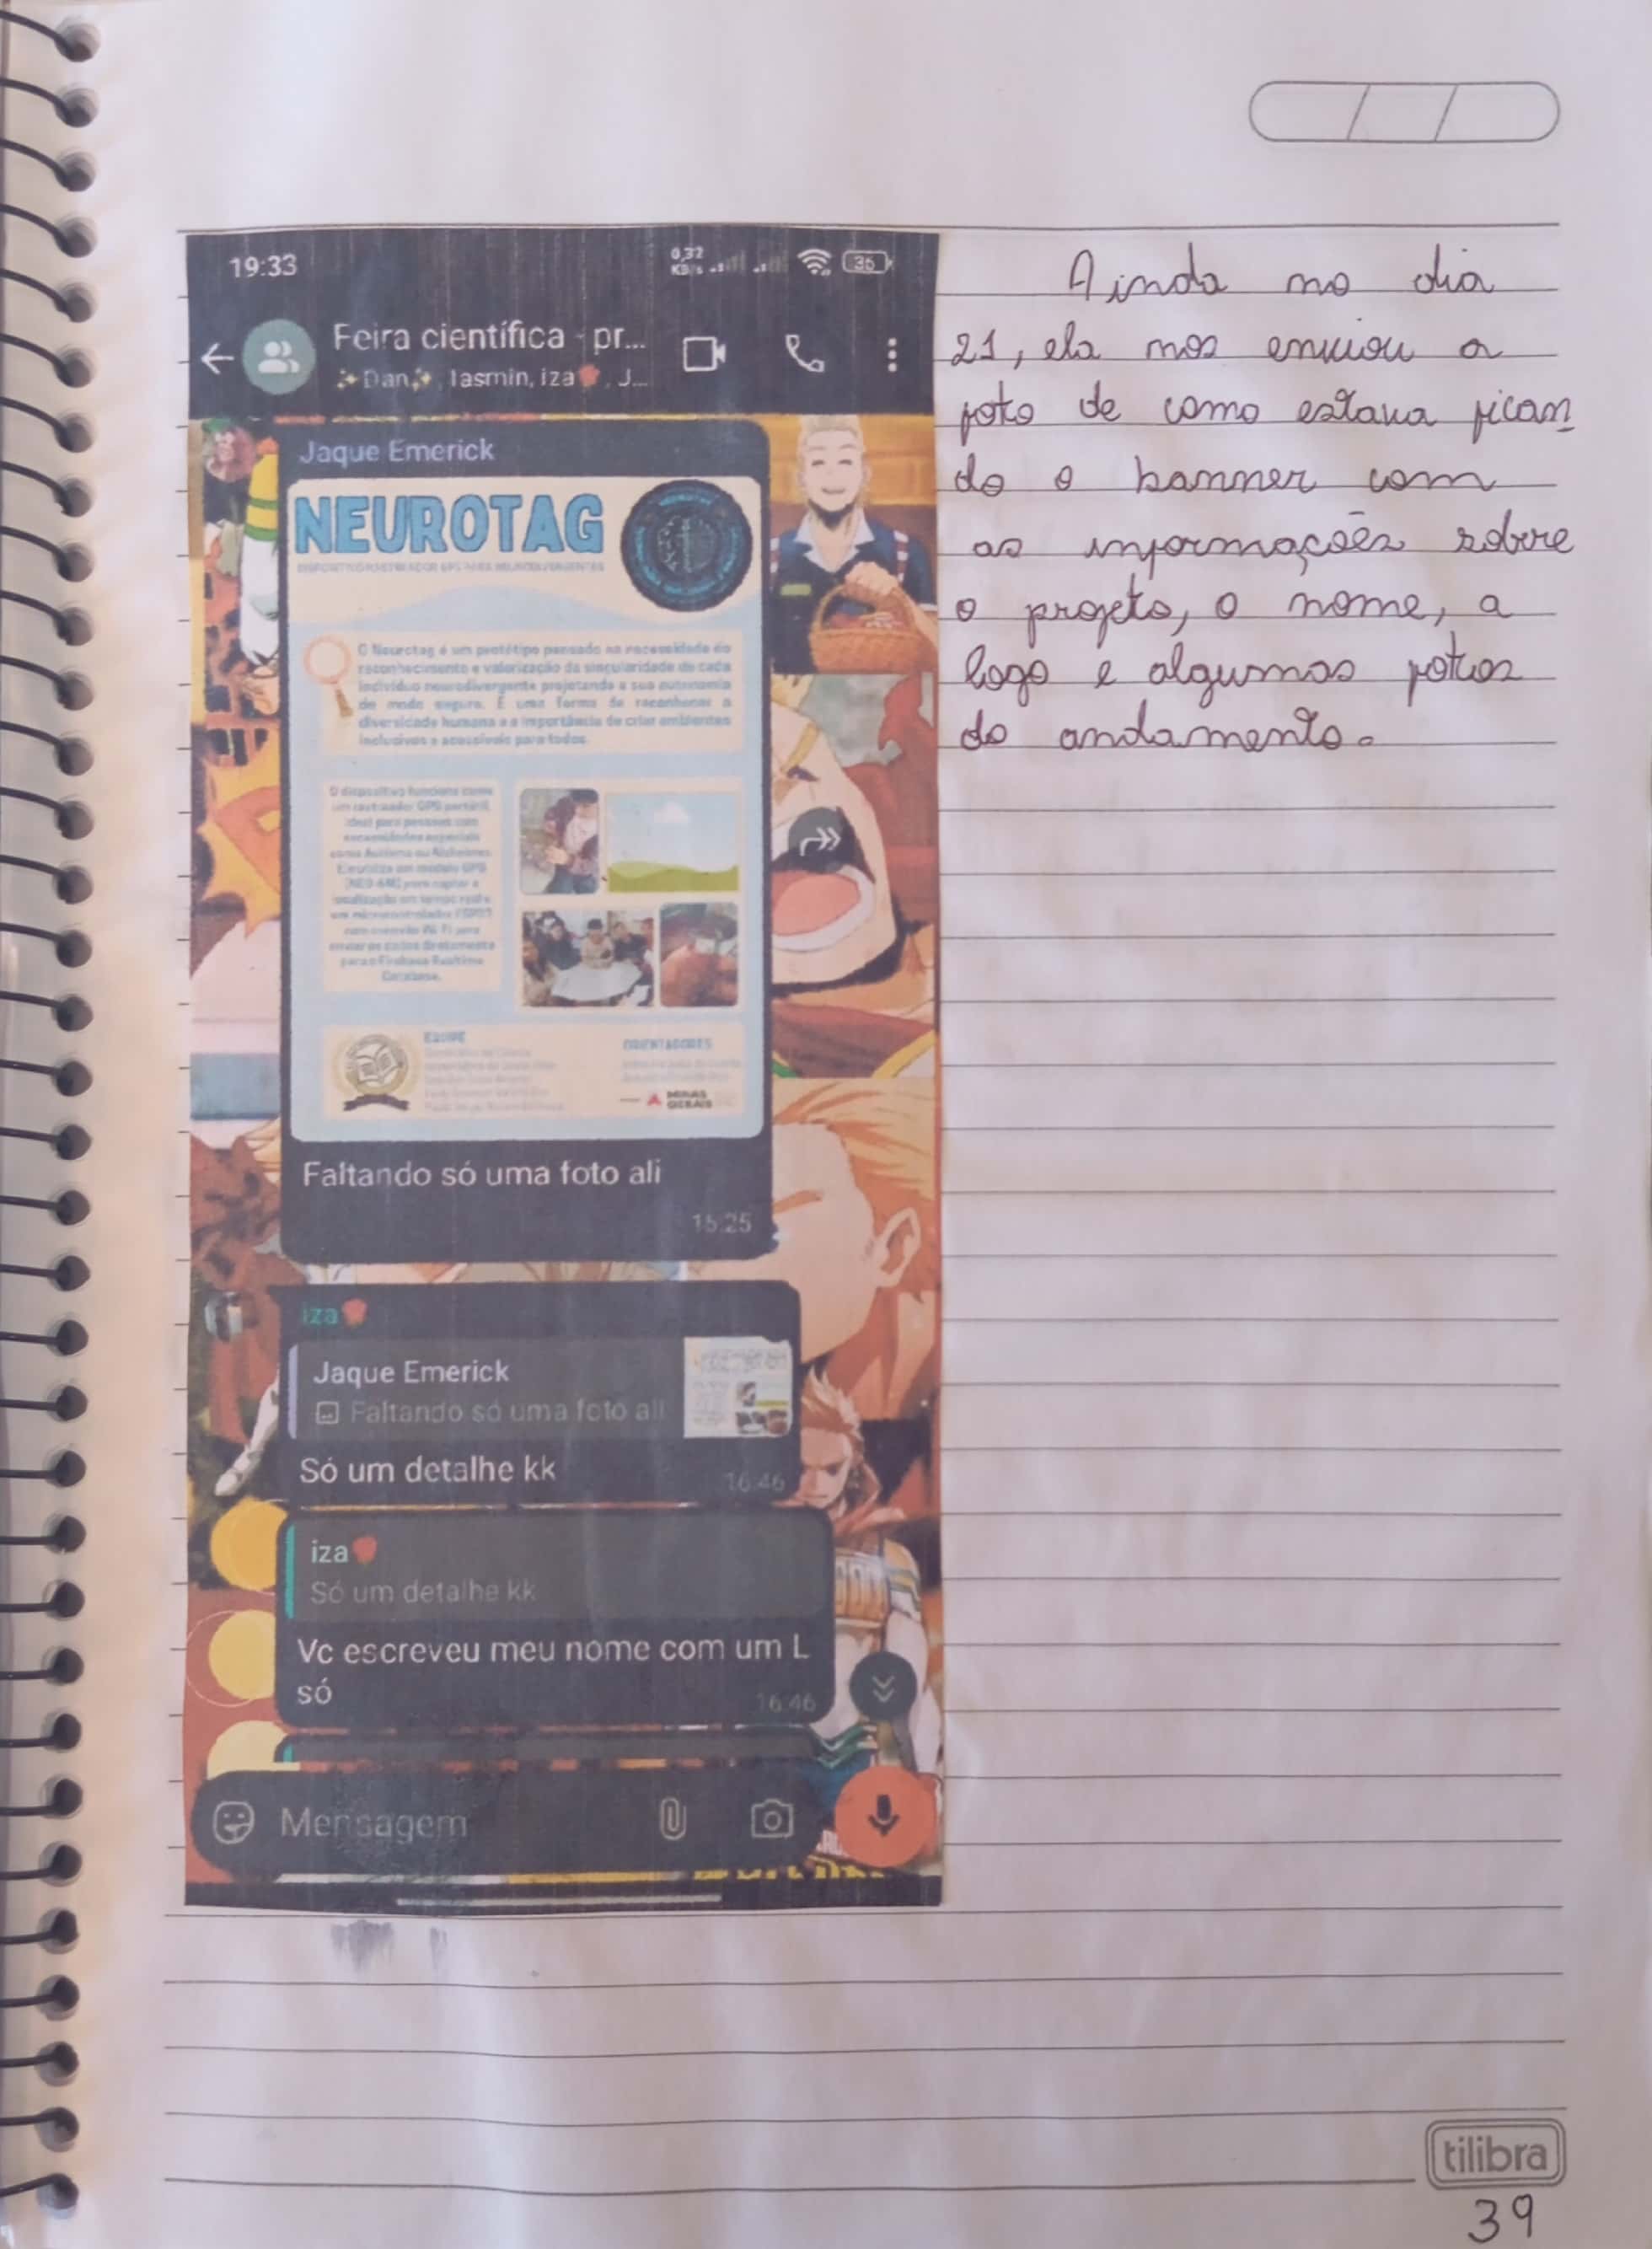 19:33
0,32
KB/s
36
Feira científica - pr...
✨Dan✨, Iasmin, iza🌹, J...
Jaque Emerick
NEUROTAG
DISPOSITIVO RASTREADOR GPS PARA NEURODIVERGENTES
O Neurotag é um protótipo pensado na necessidade do
reconhecimento e valorização da singularidade de cada
indivíduo neurodivergente projetando a sua autonomia
de modo seguro. É uma forma de reconhecer a
diversidade humana e a importância de criar ambientes
inclusivos e acessíveis para todos.
O dispositivo funciona como
um rastreador GPS portátil,
ideal para pessoas com
necessidades especiais
como Autismo ou Alzheimer.
Ele utiliza um módulo GPS
(NEO-6M) para captar a
localização em tempo real e
um microcontrolador ESP32
com conexão Wi-Fi para
enviar os dados diretamente
para o Firebase Realtime
Database.
EQUIPE
ORIENTADORES
MINAS
GERAIS
Faltando só uma foto ali
15:25
iza🌹
Jaque Emerick
Faltando só uma foto ali
Só um detalhe kk
16:46
iza🌹
Só um detalhe kk
Vc escreveu meu nome com um L
só
16:46
Mensagem
Ainda no dia
21, ela nos enviou a
foto de como estava fican
do o banner com
as informações sobre
o projeto, o nome, a
logo e algumas fotos
do andamento.
tilibra
39